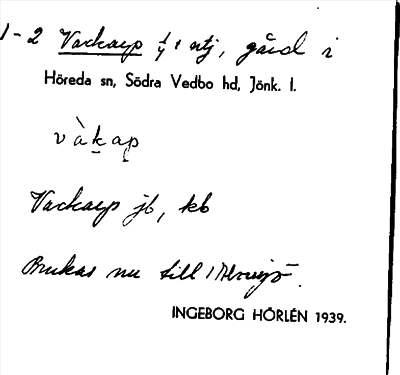 1-2 Vackarp ¼ ntj, gård i
Höreda sn, Södra Vedbo hd, Jönk. l.
vàkap
Vackarp jb, kb
Brukas nu till
INGEBORG HÖRLÉN 1939.